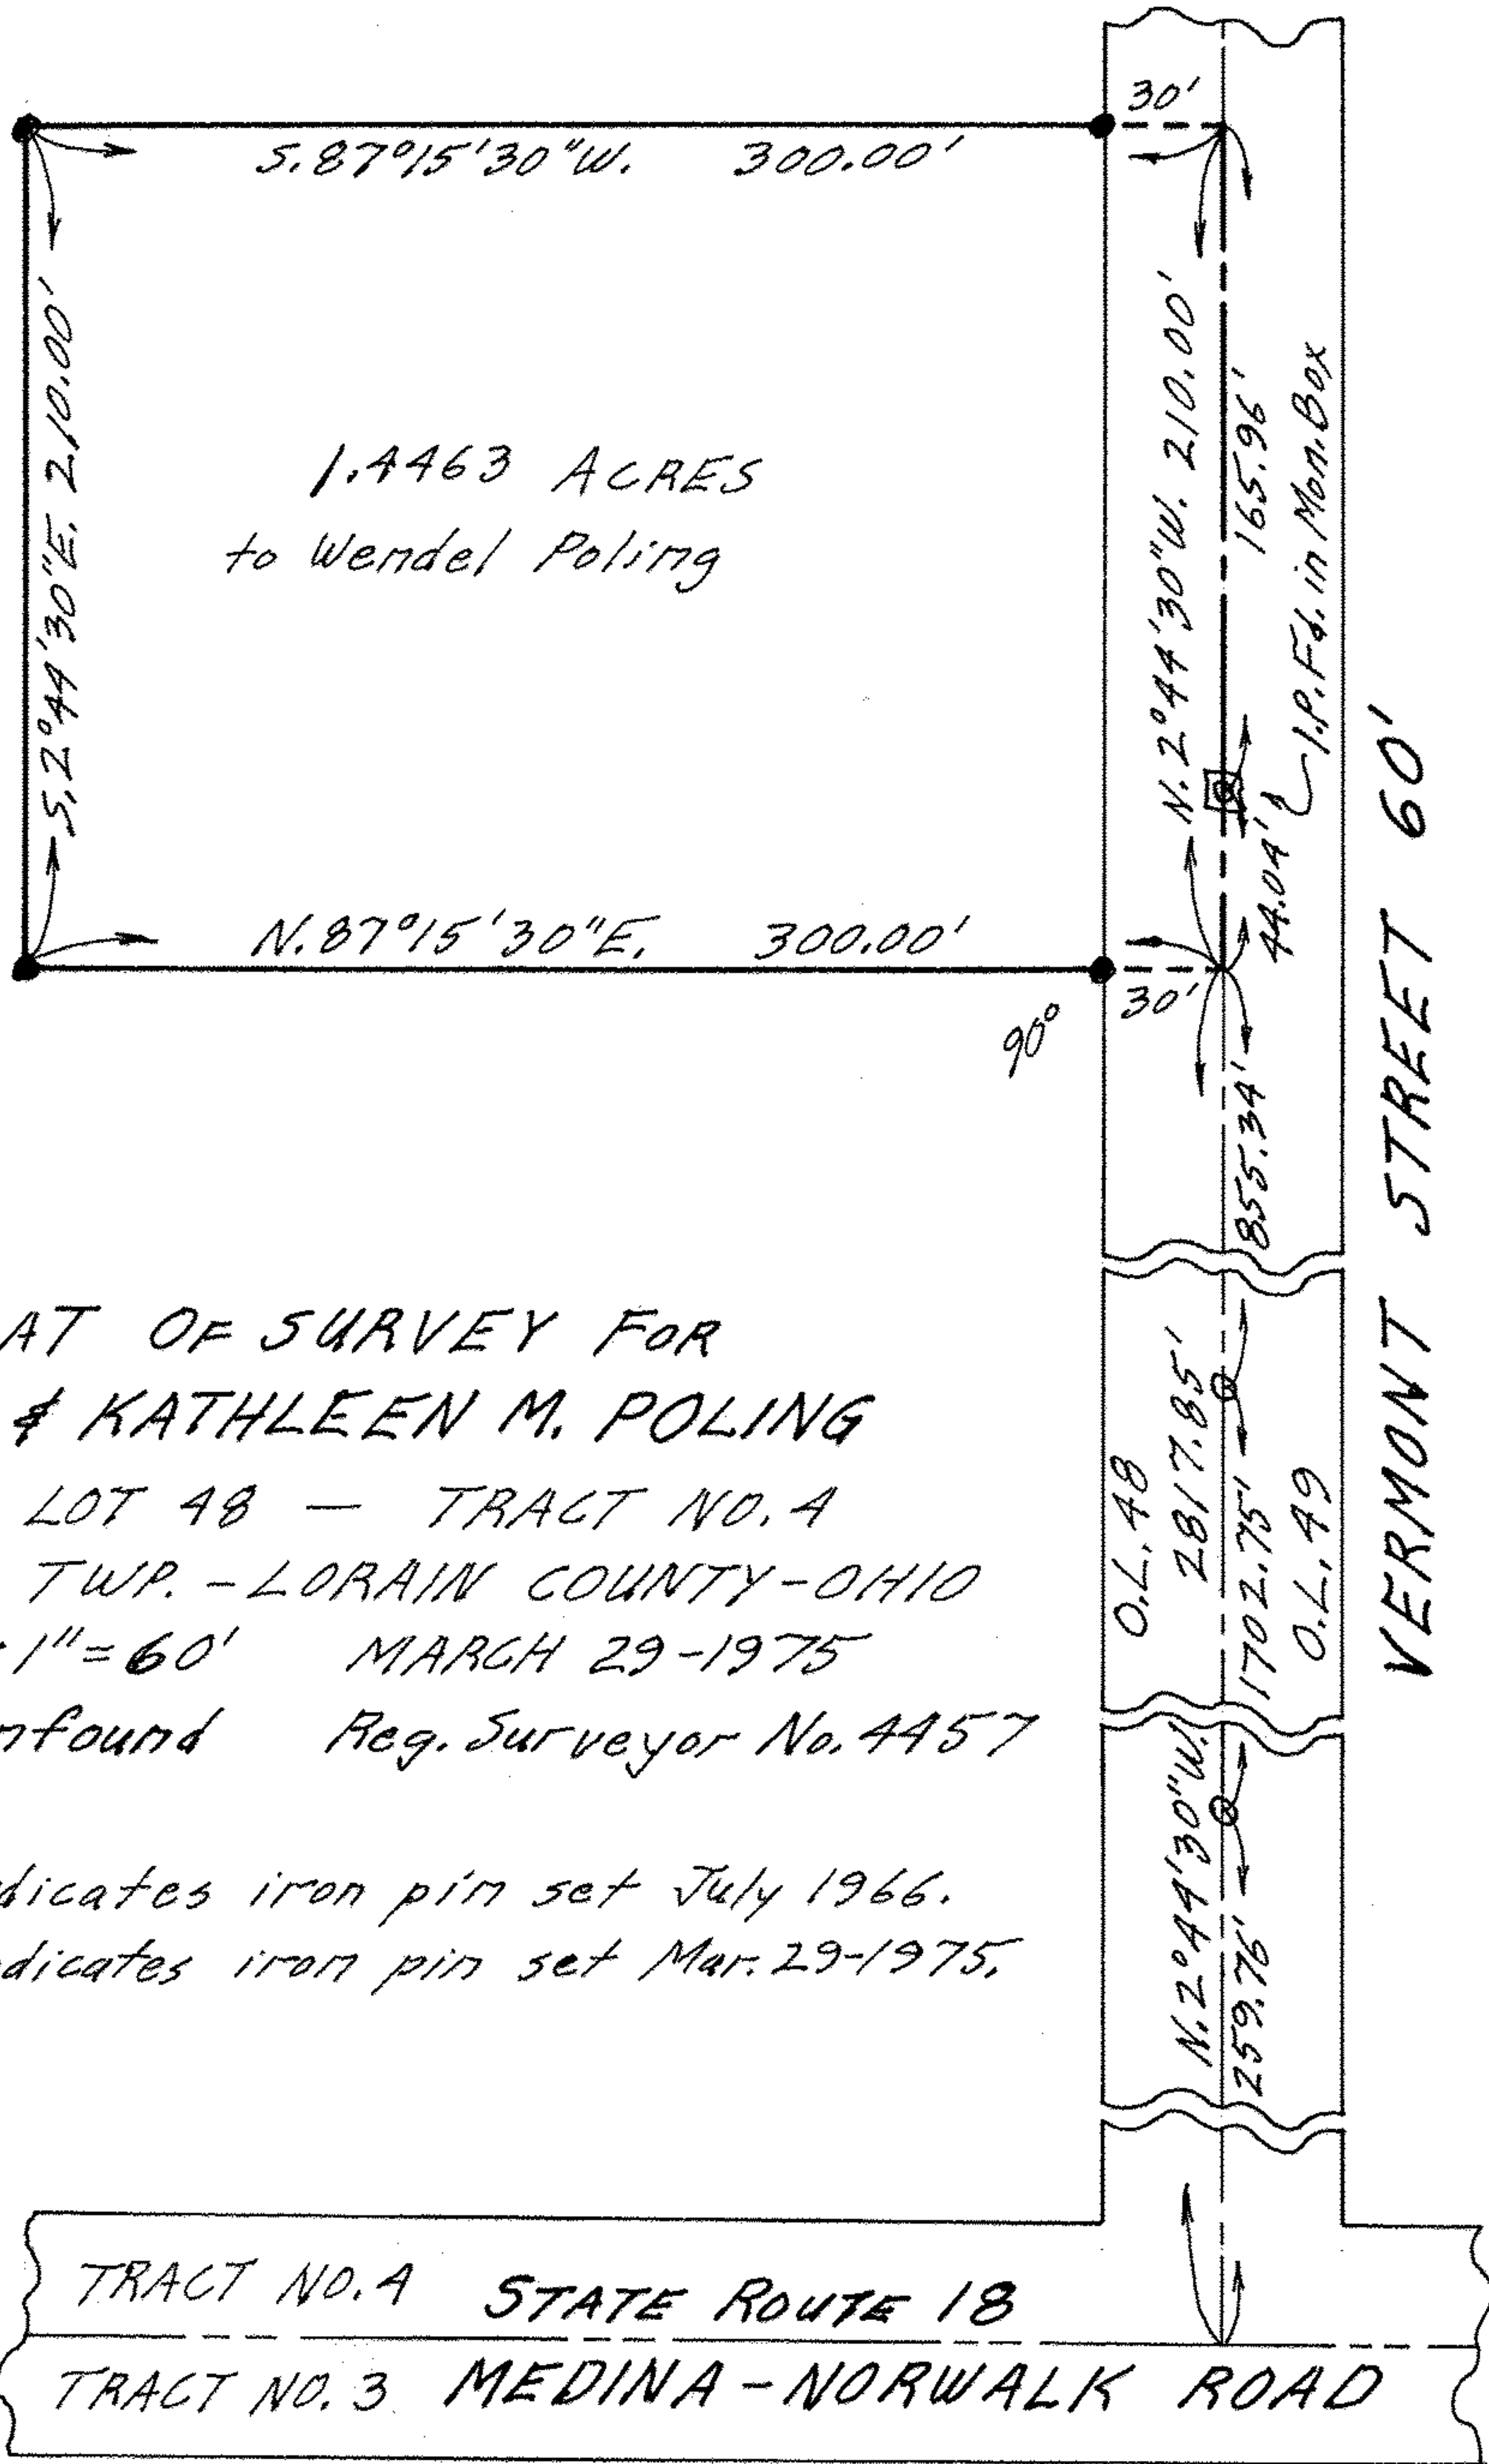 30'
S.87°15'30"W. 300.00'
S.2°44'30"E. 210.00'
1.4463 ACRES
to Wendel Poling
N.2°44'30"W. 210.00'
165.96'
I.P.Fd. in Mon.Box
44.04'
N.87°15'30"E. 300.00'
30'
90°
855.34'
VERMONT STREET 60'
AT OF SURVEY FOR
& KATHLEEN M. POLING
LOT 48 — TRACT NO.4
TWP. - LORAIN COUNTY - OHIO
1"=60' MARCH 29-1975
nfound Reg. Surveyor No. 4457
dicates iron pin set July 1966.
dicates iron pin set Mar. 29-1975.
O.L. 48
2817.85'
1702.75'
O.L. 49
N.2°44'30"W.
259.76'
TRACT NO.4 STATE ROUTE 18
TRACT NO. 3 MEDINA - NORWALK ROAD